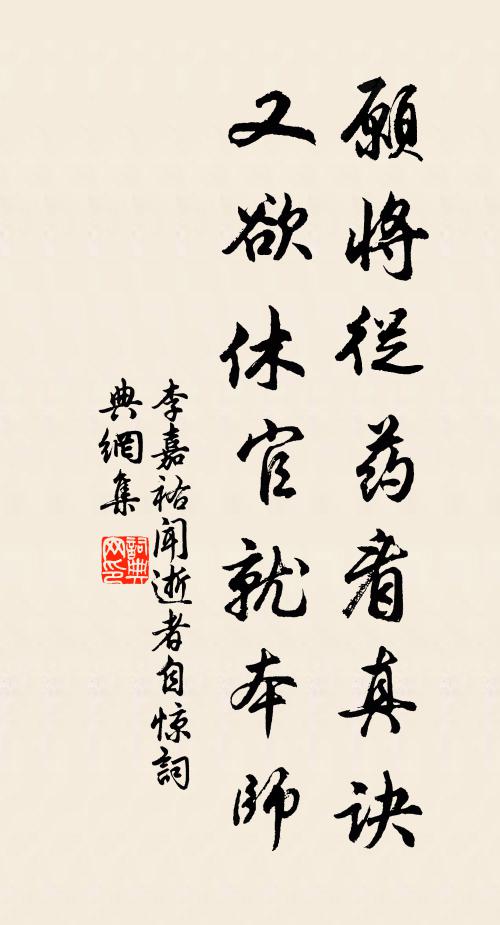 願將從药看真訣
又欲休官就本師
李嘉祐闻逝者自惊詞
典網集
詞典
网印